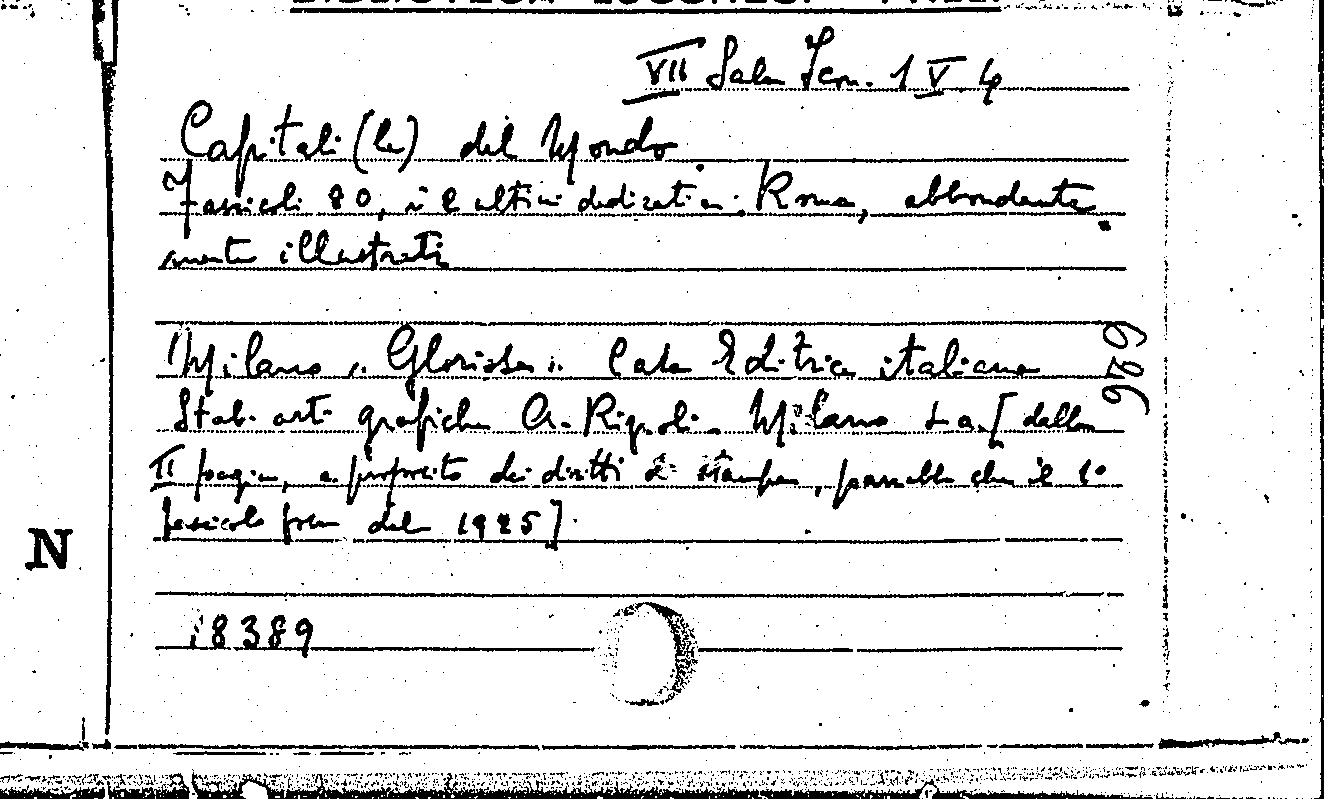 VII Sala Scan. 1 V. 4
Capitali (le) del Mondo.
Fascicoli 80, i 2 ultimi dedicati a: Roma, abbondante
mente illustrati
Milano "Gloriosa". Casa Editrice italiana
Stab. arti grafiche A. Rizzoli. Milano s.a. [dalla
II pagina, a proposito dei diritti di stampa, parrebbe che il 1°
fascicolo fosse del 1925].
18389
N